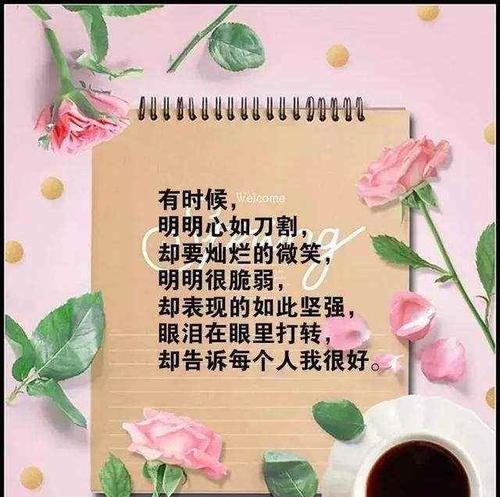 Welcome
有时候，
明明心如刀割，
却要灿烂的微笑，
明明很脆弱，
却表现的如此坚强，
眼泪在眼里打转，
却告诉每个人我很好。